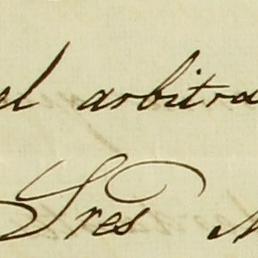 el arbitra
Sres